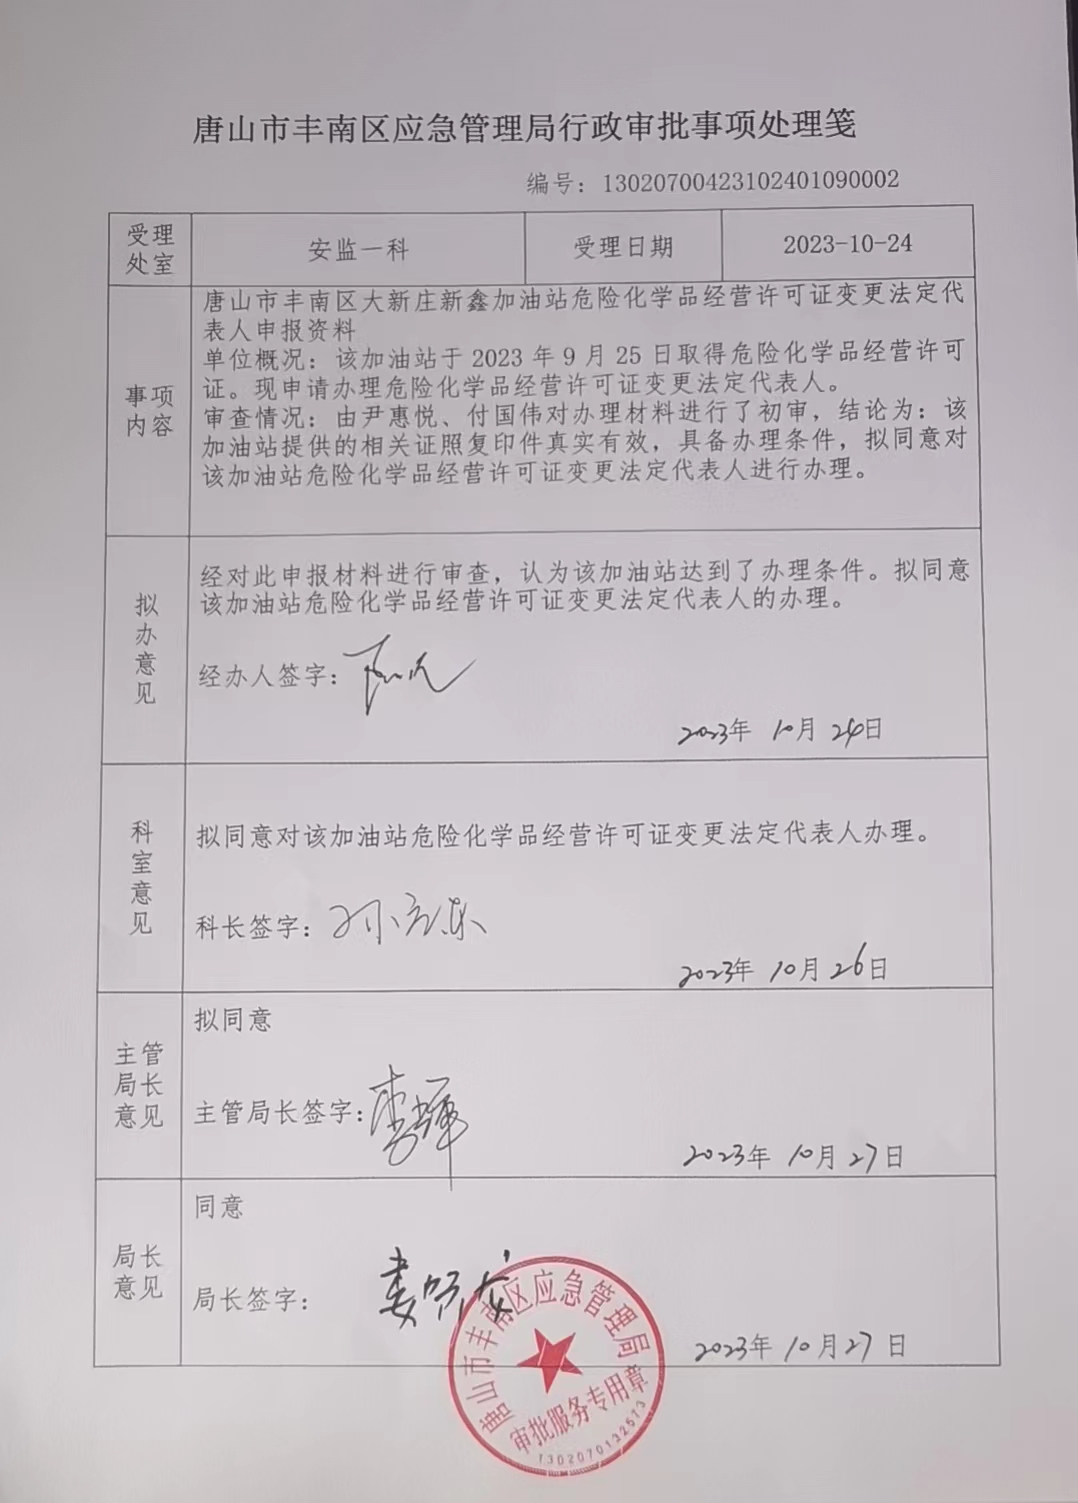 唐山市丰南区应急管理局行政审批事项处理笺
编号：13020700423102401090002
受理
处室
安监一科
受理日期
2023-10-24
事项
内容
唐山市丰南区大新庄新鑫加油站危险化学品经营许可证变更法定代
表人申报资料
单位概况：该加油站于 2023 年 9 月 25 日取得危险化学品经营许可
证。现申请办理危险化学品经营许可证变更法定代表人。
审查情况：由尹惠悦、付国伟对办理材料进行了初审，结论为：该
加油站提供的相关证照复印件真实有效，具备办理条件，拟同意对
该加油站危险化学品经营许可证变更法定代表人进行办理。
拟
办
意
见
经对此申报材料进行审查，认为该加油站达到了办理条件。拟同意
该加油站危险化学品经营许可证变更法定代表人的办理。
经办人签字：
2023年 10月 24日
科
室
意
见
拟同意对该加油站危险化学品经营许可证变更法定代表人办理。
科长签字：
2023年 10月 26日
主管
局长
意见
拟同意
主管局长签字：
2023年 10月 27日
局长
意见
同意
局长签字：
2023年 10月 27日
唐山市丰南区应急管理局
审批服务专用章
1302070132513